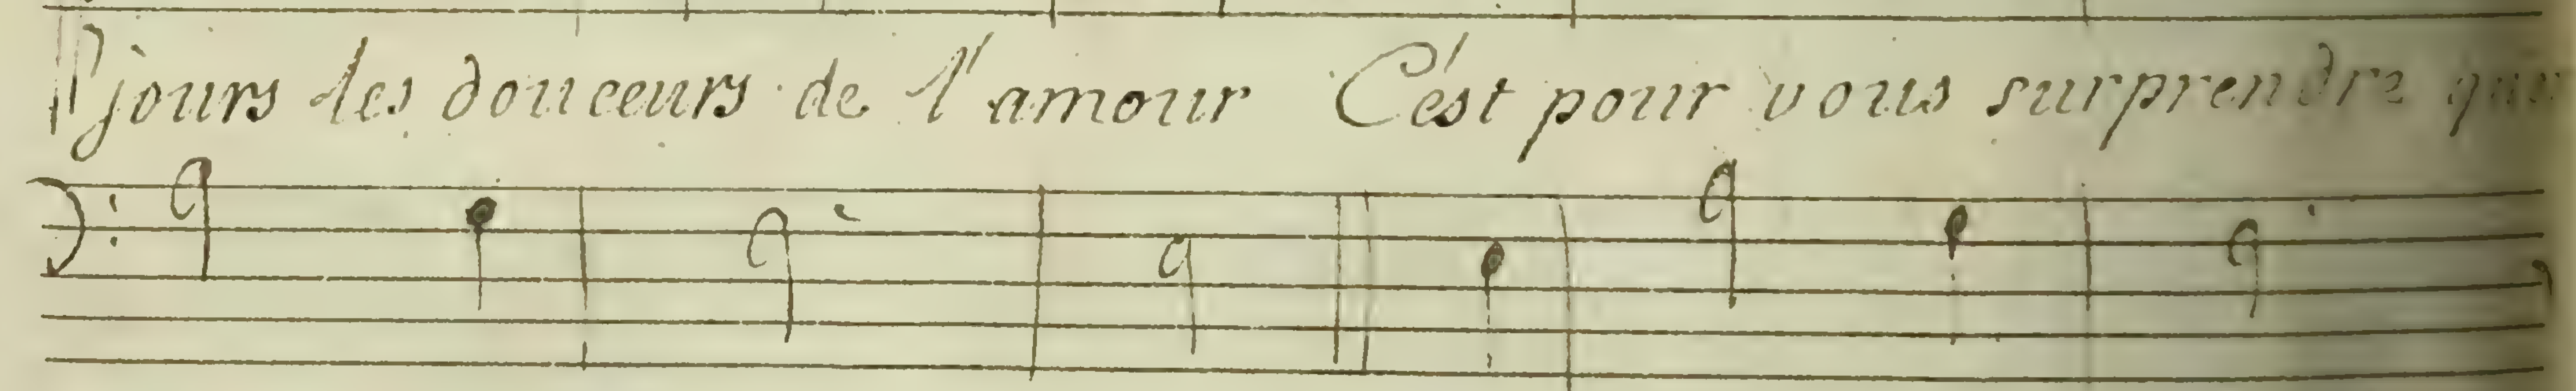 jours les douceurs de l'amour C'est pour vous surprendre